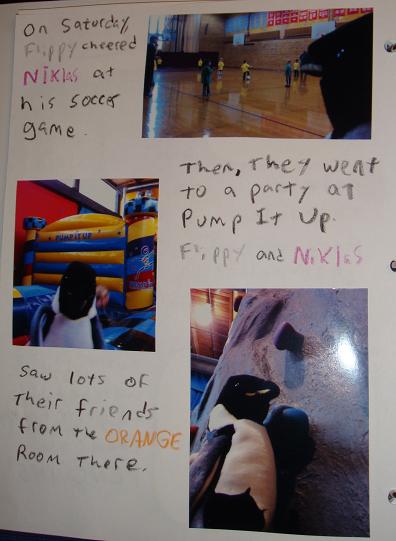 On Saturday,
Flippy cheered
Niklas at
his soccer
game.
Then, They went
to a party at
Pump It Up.
Flippy and Niklas
PUMP IT UP
saw lots of
Their friends
from the ORANGE
Room There.